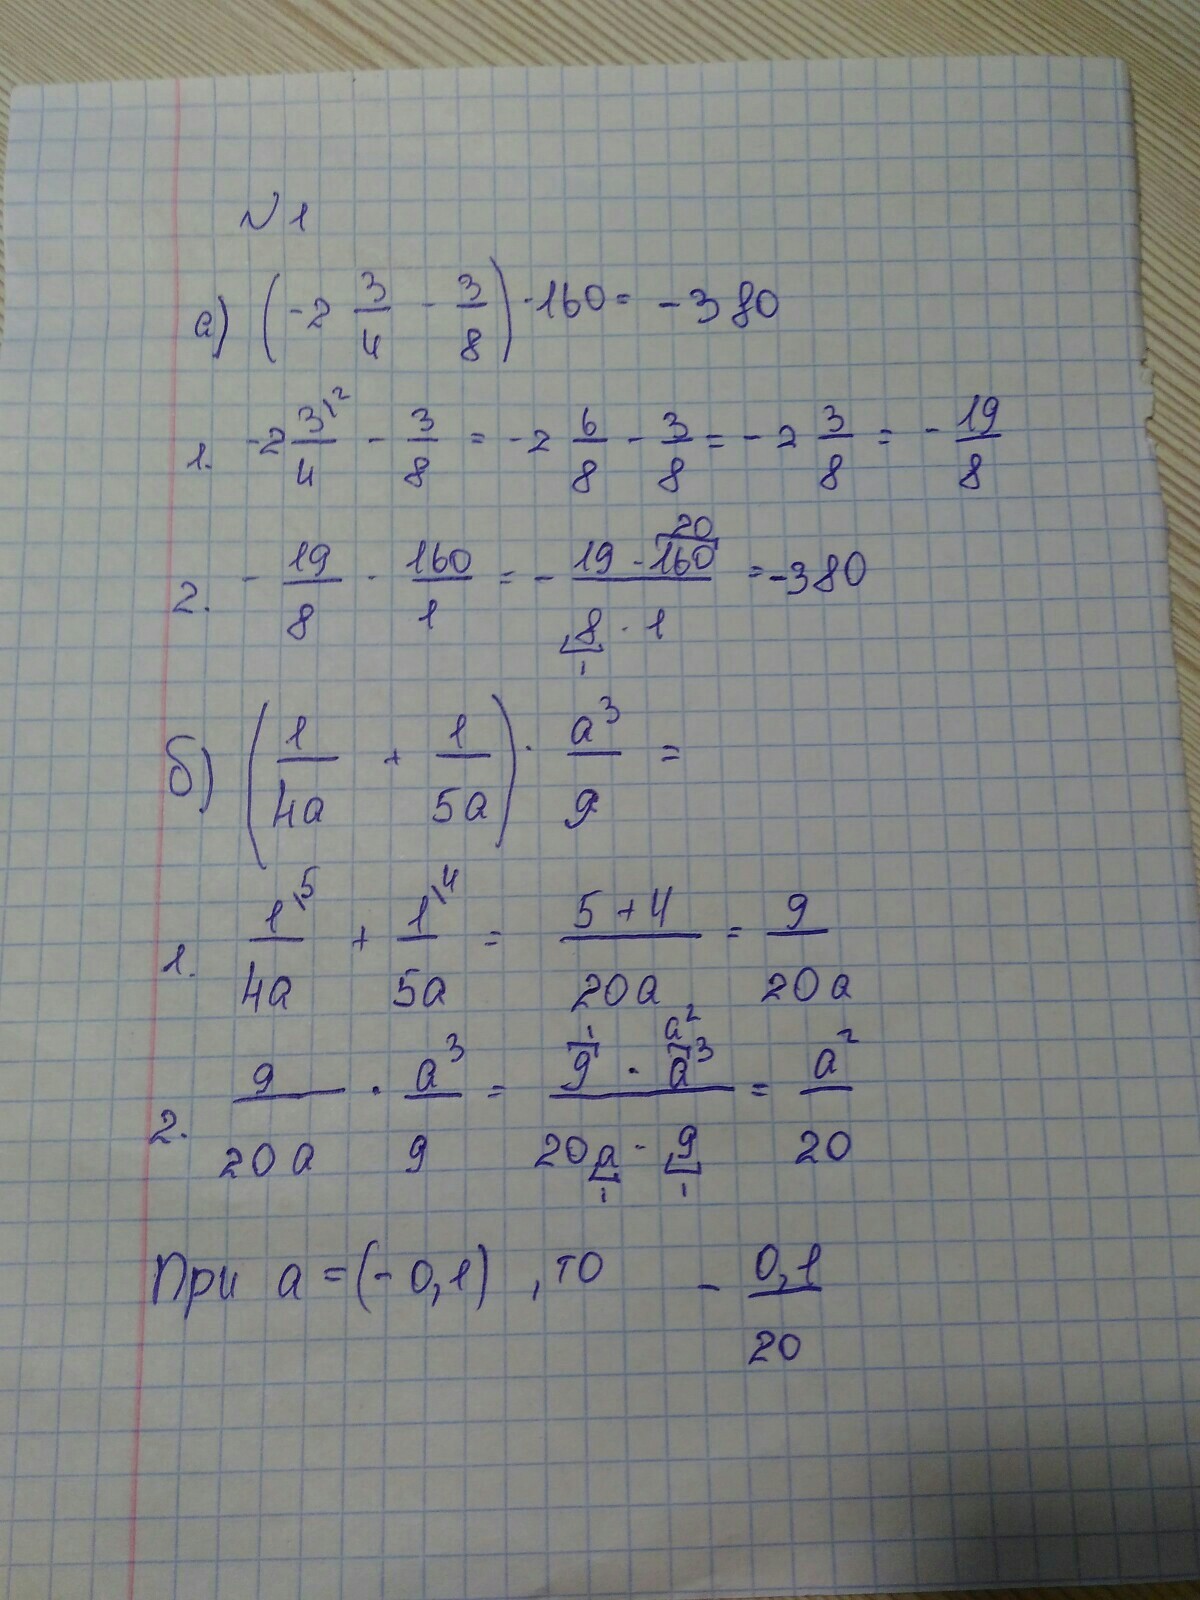 №1
а) (-2 3/4 - 3/8) · 160 = -380
1. -2 3\2/4 - 3/8 = -2 6/8 - 3/8 = -2 3/8 = -19/8
2. -19/8 · 160/1 = - 19 · 160 20/8 · 1 1 = -380
б) (1/4a + 1/5a) · a³/9 =
1. 1\5/4a + 1\4/5a = 5+4/20a = 9/20a
2. 9/20a · a³/9 = 9 1 · a³ a²/20a 1 · 9 1 = a²/20
При a = (-0,1) , то - 0,1/20